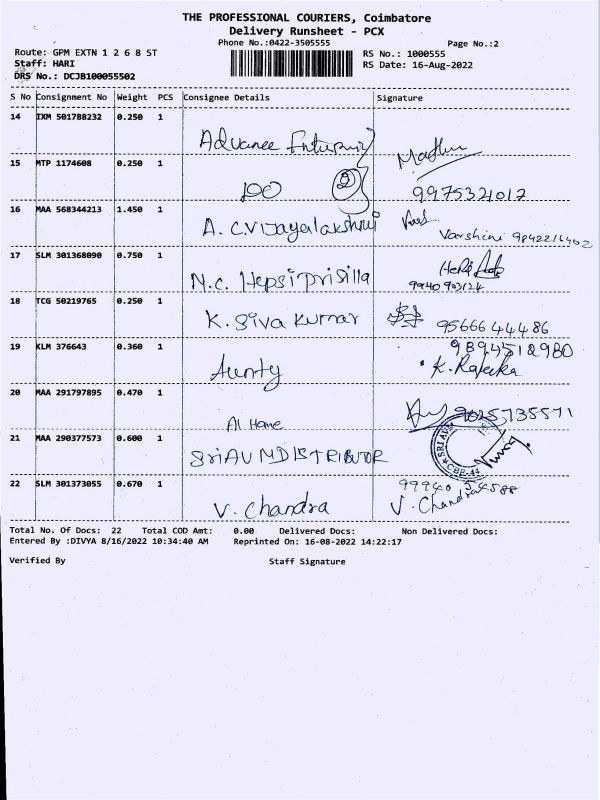 THE PROFESSIONAL COURIERS, Coimbatore
Delivery Runsheet - PCX
Phone No.:0422-3505555
Page No.:2
Route: GPM EXTN 1 2 6 8 ST
RS No.: 1000555
Staff: HARI
RS Date: 16-Aug-2022
DRS No.: DCJB100055502
S No Consignment No Weight PCS Consignee Details Signature
14 IXM 501788232 0.250 1
Advance
15 MTP 1174608 0.250 1
100 2 9975321017
16 MAA 568344213 1.450 1
A. C. Vijayalakshmi
Varshini 9842216402
17 SLM 301368090 0.750 1
N.C. Hepsi Prisilla
18 TCG 50219765 0.250 1
K. Siva Kumar 9566644486
19 KLM 376643 0.360 1 9894512980
Aunty K. Rafeeka
20 MAA 291797895 0.470 1
At Home 9025735571
21 MAA 290377573 0.600 1
SRIAUM DISTRIBUTOR SRI AUM CBE-44
22 SLM 301373055 0.670 1 99940 54588
V. Chandra V. Chandra
Total No. Of Docs: 22 Total COD Amt: 0.00 Delivered Docs: Non Delivered Docs:
Entered By :DIVYA 8/16/2022 10:34:40 AM Reprinted On: 16-08-2022 14:22:17
Verified By Staff Signature